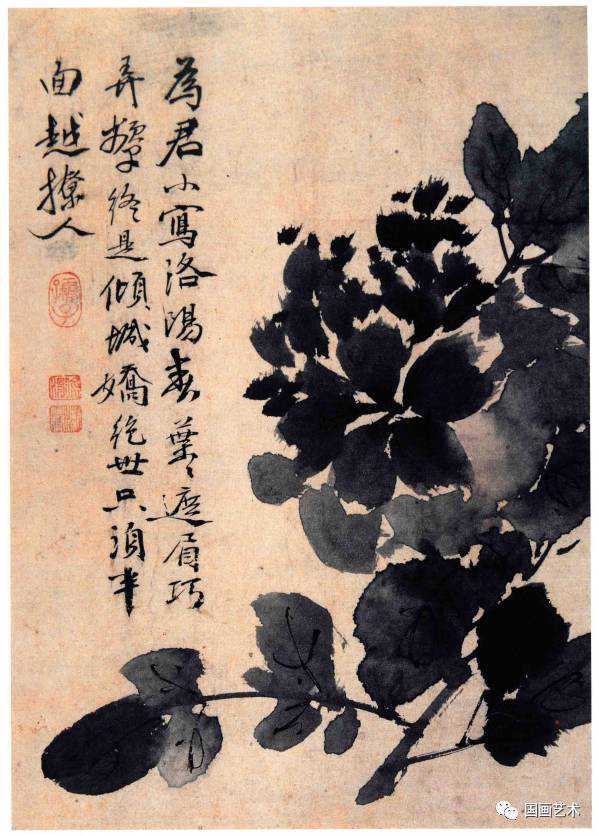 為君小寫洛陽春葉〻遮眉巧
弄顰終是傾城嬌絕世只須半
面越撩人
国画艺术